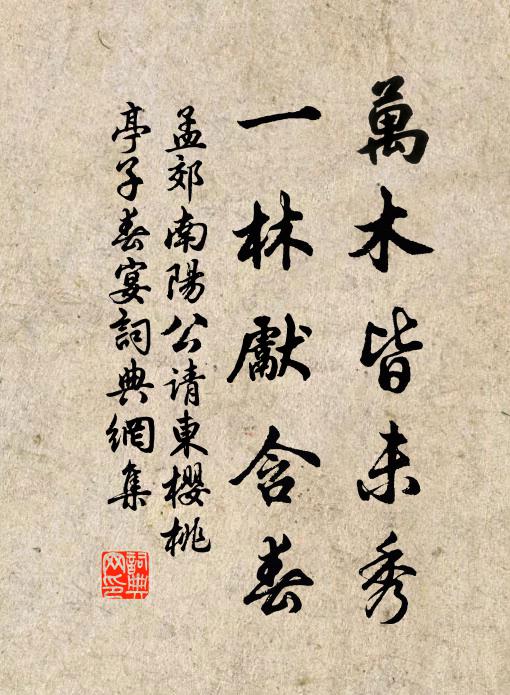 萬木皆未秀
一林獻含春
孟郊南陽公请東櫻桃
亭子春宴詞典網集
詞典
网印